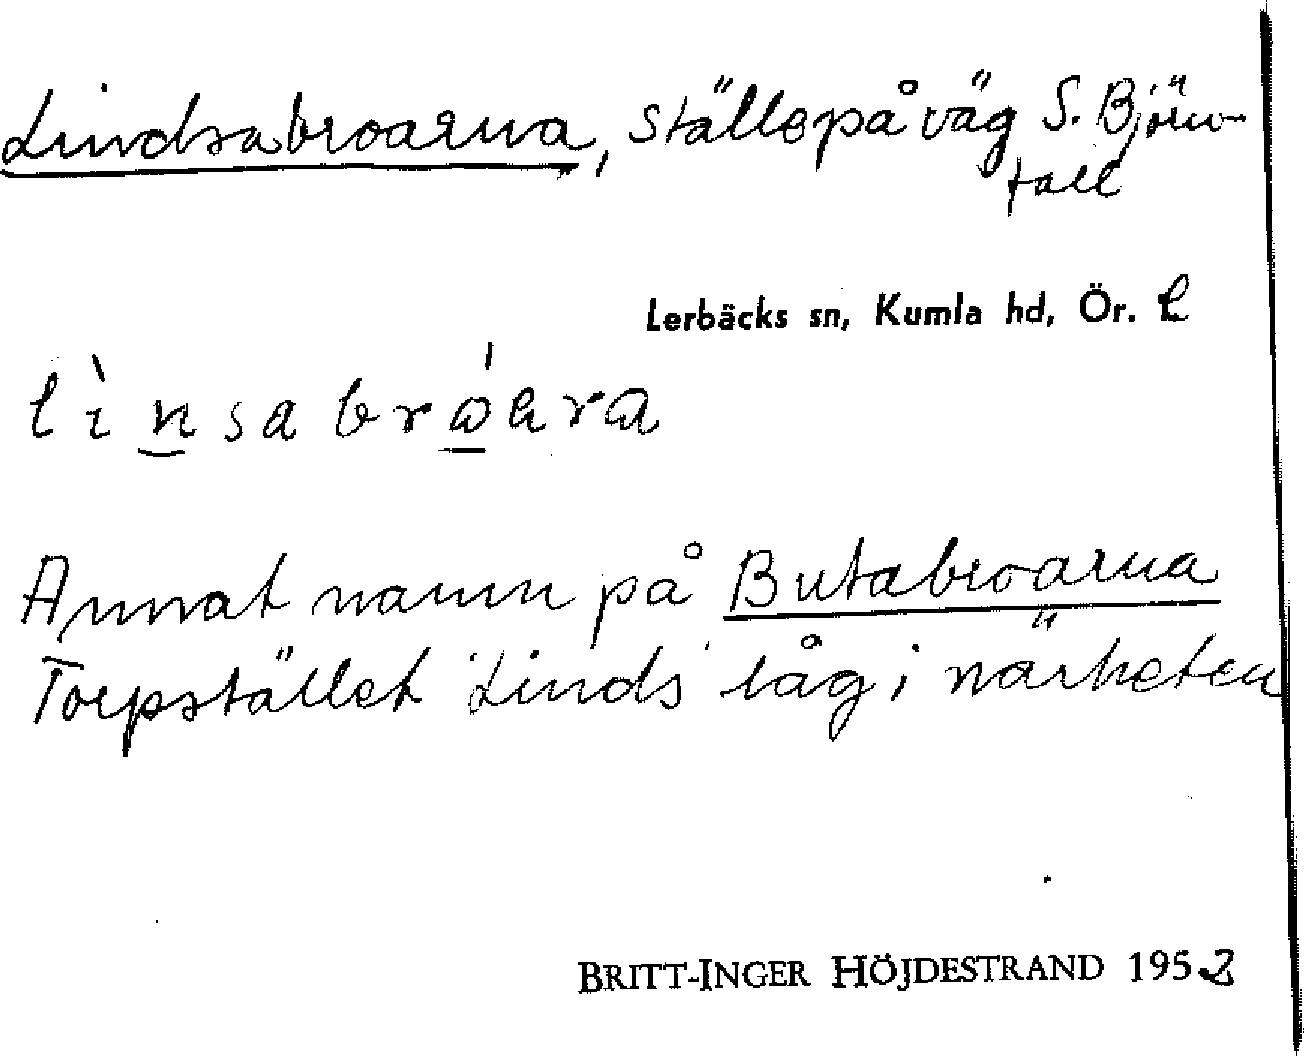 Lindsabroarna, ställe på väg S. Björn-
fall
Lerbäcks sn, Kumla hd, Ör. L
lìnsabróara
Annat namn på Butabroarna
Torpstället 'Linds' låg i närheten
BRITT-INGER HÖJDESTRAND 1952